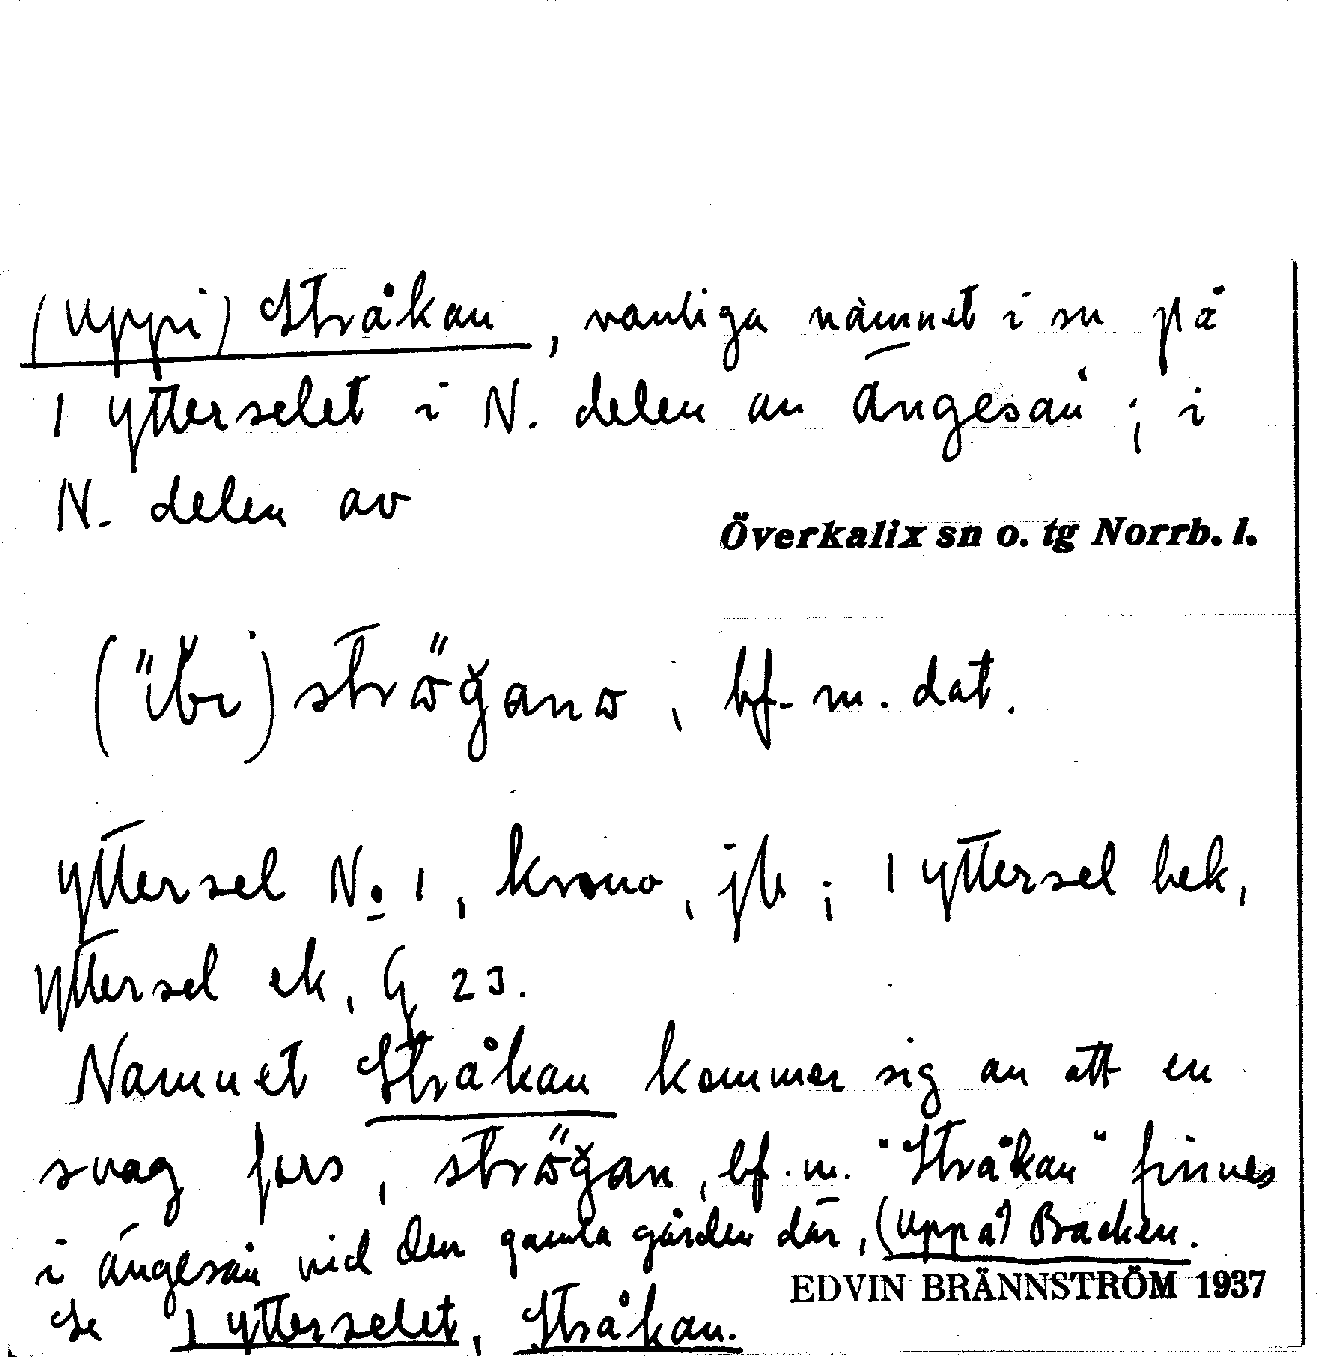 (Uppi) Stråkan, vanliga nämnet i sn på
1 Ytterselet i N. delen av Ängesån; i
N. delen av
Överkalix sn o. tg Norrb. l.
bf. m. dat.
Yttersel No 1, krono, jb; 1 Yttersel bek,
Yttersel ek, G 23.
Namnet Stråkan kommer sig av att en
svag fors, bf. m. "Stråkan" finnes
i Ängesån vid den gamla gården där, (Uppå) Backen.
EDVIN BRÄNNSTRÖM 1937
Se 1 Ytterselet, Stråkan.